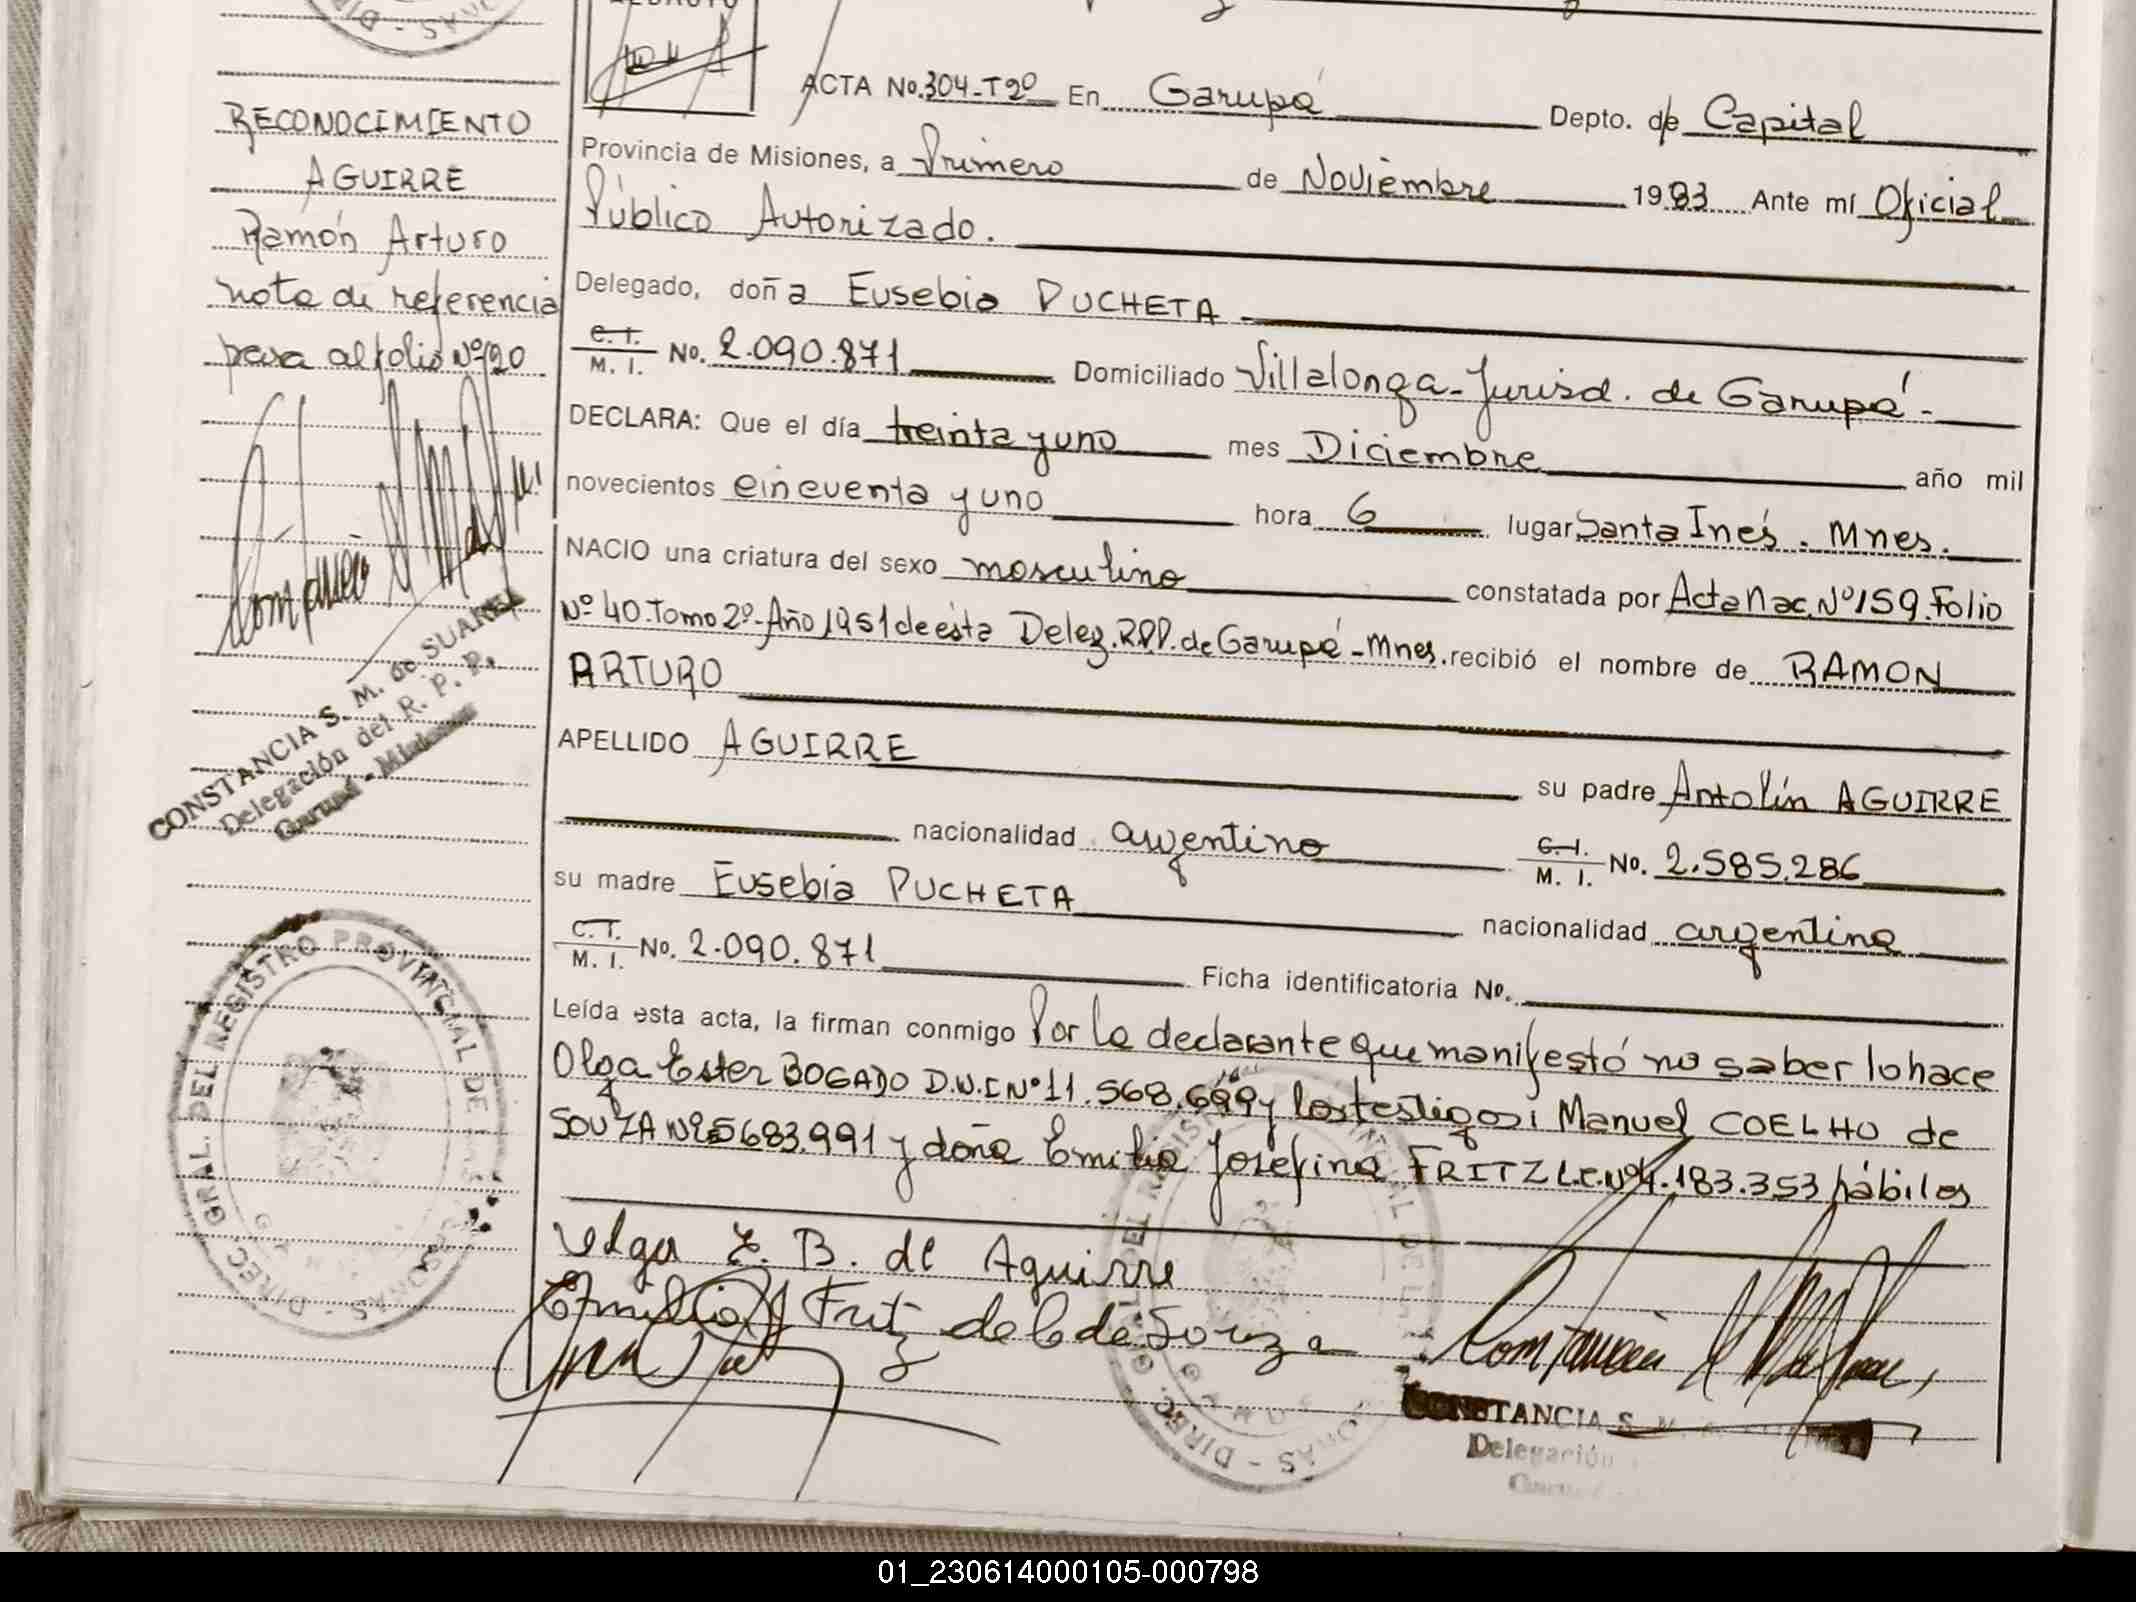 RECONOCIMIENTO
AGUIRRE
Ramón Arturo
nota de referencia
pasa al folio Nº 120
CONSTANCIA S. M. de SUAREZ
Delegación del R. P. P.
Garupá - Misiones
DIREC. GRAL. DEL REGISTRO PROVINCIAL DE LAS PERSONAS
ACTA No. 304-T2º En Garupá Depto. de Capital
Provincia de Misiones, a Primero de Noviembre 1983 Ante mí Oficial
Público Autorizado.
Delegado, doña Eusebia PUCHETA
C. I.
M. I. No. 2.090.871 Domiciliado Villalonga-Jurisd. de Garupá-
DECLARA: Que el día treinta y uno mes Diciembre año mil
novecientos cincuenta y uno hora 6 lugar Santa Inés. Mnes.
NACIO una criatura del sexo masculino constatada por Acta Nac. Nº 159. Folio
Nº 40. Tomo 2º-Año 1951 de ésta Deleg. R.P.P. de Garupá-Mnes. recibió el nombre de RAMON
ARTURO
APELLIDO AGUIRRE su padre Antolín AGUIRRE
nacionalidad argentino C. I.
M. I. No. 2.585.286
su madre Eusebia PUCHETA nacionalidad argentina
C. I.
M. I. No. 2.090.871 Ficha identificatoria No.
Leída esta acta, la firman conmigo Por la declarante que manifestó no saber lo hace
Olga Ester BOGADO D.N.I Nº 11.568.699 y los testigos: Manuel COELHO de
SOUZA Nº 5683.991 y doña Emilia Josefina FRITZ L.C. Nº 4.183.353 hábiles
Olga E. B. de Aguirre
Emilia J Fritz de C de Souza
CONSTANCIA S.
Delegación
DIREC. GRAL. DEL REGISTRO PROVINCIAL DE LAS PERSONAS
01_230614000105-000798